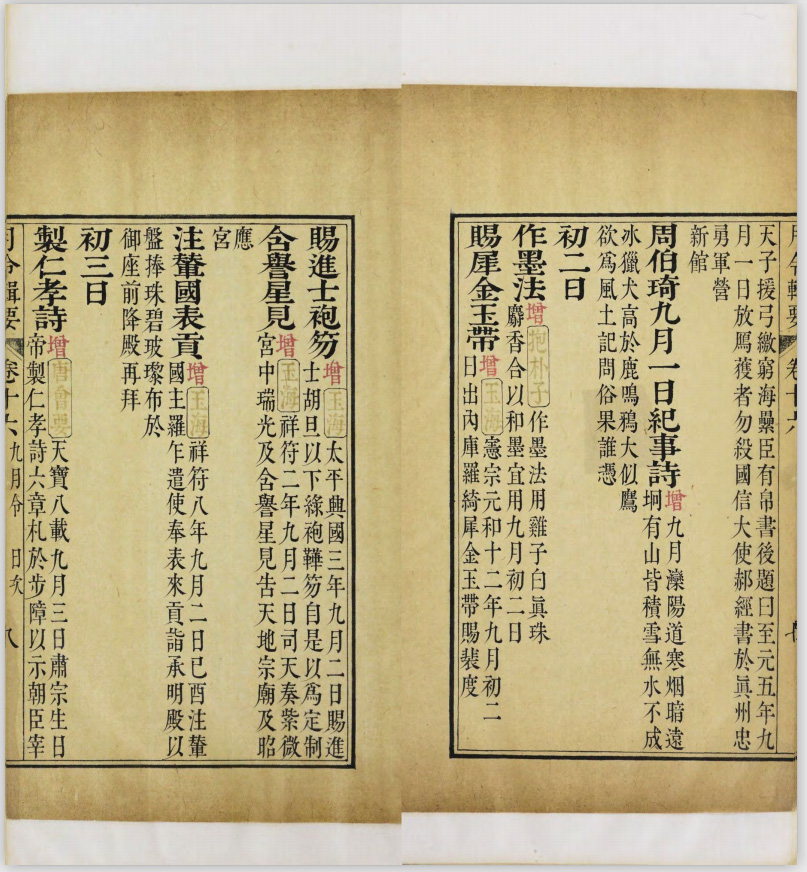 天子援弓繳窮海纍臣有帛書後題曰至元五年九
月一日放鴈獲者勿殺國信大使郝經書於眞州忠
勇軍營
新館
周伯琦九月一日紀事詩 增 九月灤陽道寒烟暗遠
坰有山皆積雪無水不成
冰獵犬高於鹿鳴鴉大似鷹
欲爲風土記問俗果誰憑
初二日
作墨法 增 抱朴子 作墨法用雞子白眞珠
麝香合以和墨宜用九月初二日
賜犀金玉帶 增 玉海 憲宗元和十二年九月初二
日出內庫羅綺犀金玉帶賜裴度
賜進士袍笏 增 玉海 太平興國三年九月二日賜進
士胡旦以下綠袍鞾笏自是以爲定制
含譽星見 增 玉海 祥符二年九月二日司天奏紫微
宮中瑞光及含譽星見告天地宗廟及昭
應
宮
注輦國表貢 增 玉海 祥符八年九月二日己酉注輦
國主羅乍遣使奉表來貢詣承明殿以
盤捧珠碧玻瓈布於
御座前降殿再拜
初三日
製仁孝詩 增 唐會要 天寶八載九月三日肅宗生日
帝製仁孝詩六章札於步障以示朝臣宰
月令輯要 卷十六 九月令 日次 八